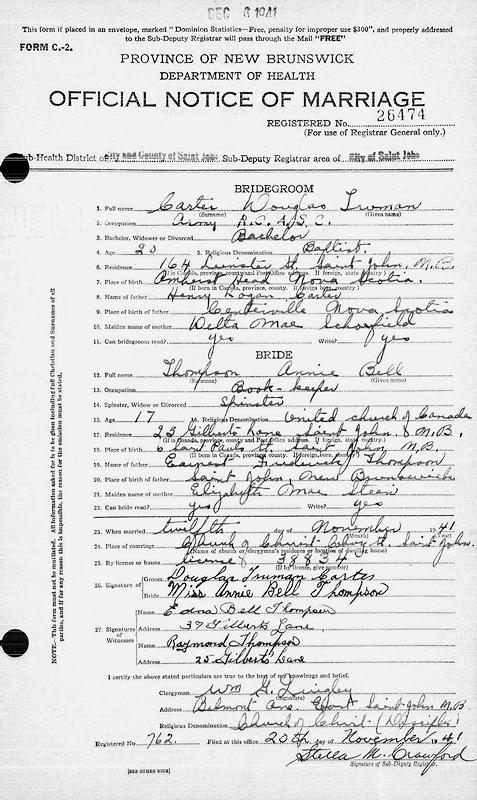 DEC 6 1941
This form if placed in an envelope, marked "Dominion Statistics—Free, penalty for improper use $300", and properly addressed
to the Sub-Deputy Registrar will pass through the Mail "FREE"
FORM C.-2.
PROVINCE OF NEW BRUNSWICK
DEPARTMENT OF HEALTH
OFFICIAL NOTICE OF MARRIAGE
REGISTERED No. 26474
(For use of Registrar General only.)
Sub-Health District of City and County of Saint John Sub-Deputy Registrar area of City of Saint John
BRIDEGROOM
1. Full name Carter Douglas Truman
(Surname) (Given name)
2. Occupation Army R.C.A.S.C.
3. Bachelor, Widower or Divorced Bachelor
4. Age 20 5. Religious Denomination Baptist
6. Residence 164 Leinster St. Saint John, N.B.
(If in Canada, province, county and Post Office address. If foreign, state country)
7. Place of birth Amherst Head Nova Scotia.
(If born in Canada, province, county. If foreign, state country)
8. Name of father Henry Logan Carter
9. Place of birth of father Centerville Nova Scotia
10. Maiden name of mother Delta Mae Schofield
11. Can bridegroom read? yes Write? yes
BRIDE
12. Full name Thompson Annie Bell
(Surname) (Given name)
13. Occupation Book-keeper
14. Spinster, Widow or Divorced Spinster
15. Age 17 16. Religious Denomination United Church of Canada
17. Residence 25 Gilberts Lane Saint John, N.B.
(If in Canada, province, county and Post Office address. If foreign, state country)
18. Place of birth St. Saint John N.B.
(If born in Canada, province, county. If foreign, state country)
19. Name of father Earnest Frederick Thompson
20. Place of birth of father Saint John, New Brunswick
21. Maiden name of mother Elizabeth Mae
22. Can bride read? yes Write? yes
23. When married twelfth day of November 1941
(Month)
24. Place of marriage Church of Christ St. Saint John.
(Name of church or clergyman's residence or location of dwelling house)
25. By license or banns License 38834
(If by license, give number)
26. Signature of
Groom Douglas Truman Carter
Bride Miss Annie Bell Thompson
27. Signatures of Witnesses
Name Edna Bell Thompson
Address 37 Gilberts Lane.
Name Raymond Thompson
Address 25 Gilberts Lane
I certify the above stated particulars are true to the best of my knowledge and belief.
Clergyman Wm G. Quigley
(Signature)
Address Belmont Ave. East Saint John N.B.
Religious Denomination Church of Christ (Disciples)
Registered No. 762 Filed at this office 20th day of November 1941
Stella M. Crawford
Signature of Sub-Deputy Registrar.
[SEE OTHER SIDE]
NOTE.—This form must not be mutilated. All information asked for is to be given including full Christian and Surnames of all
parties, and if for any reason this is impossible, the reason for the omission must be stated.